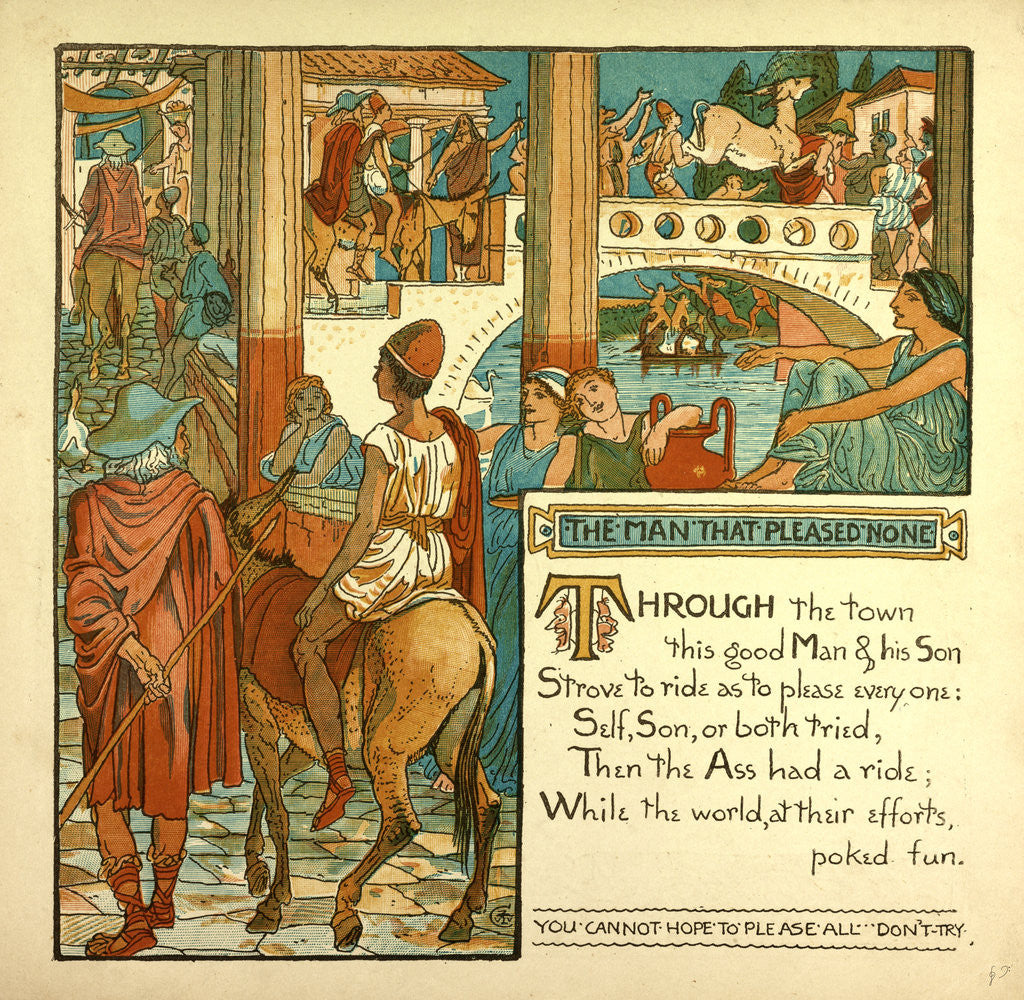 THE·MAN·THAT·PLEASED·NONE
THROUGH the town
this good Man & his Son
Strove to ride as to please every one:
Self, Son, or both tried,
Then the Ass had a ride;
While the world, at their efforts,
poked fun.
YOU·CANNOT·HOPE·TO·PLEASE·ALL···DON'T·TRY·